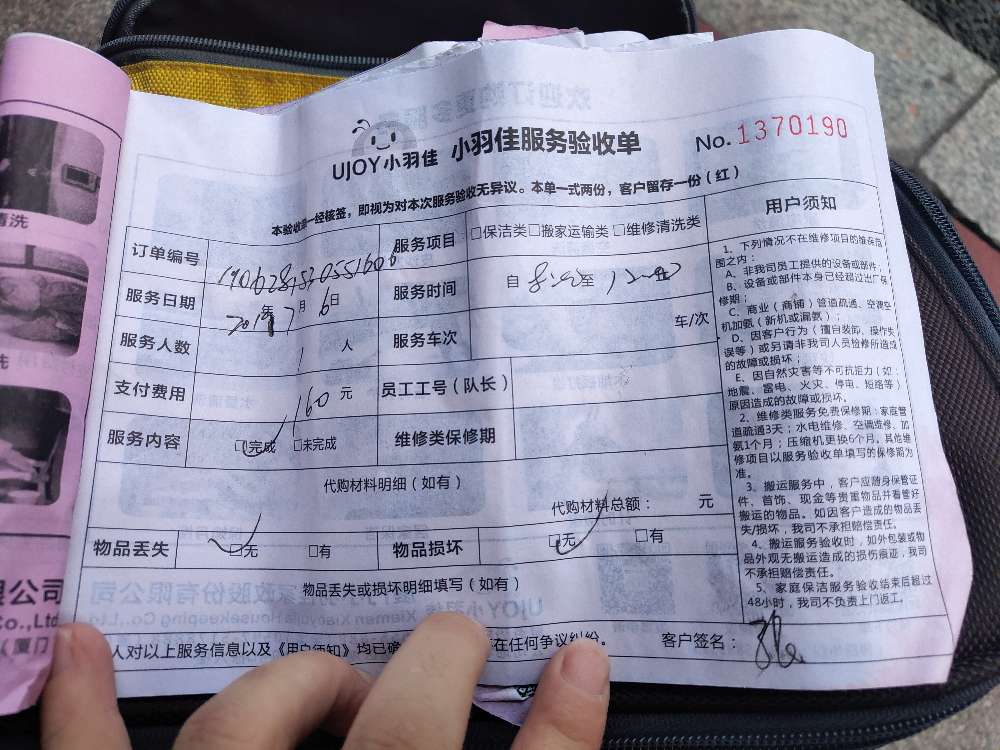 UJOY小羽佳 小羽佳服务验收单
No. 1370190
本验收单一经核签，即视为对本次服务验收无异议。本单一式两份，客户留存一份（红）
订单编号
服务项目 □保洁类□搬家运输类 □维修清洗类
服务日期 2019年7月6日
服务时间 自 至
服务人数 1 人
服务车次 车/次
支付费用 160 元
员工工号（队长）
服务内容 □完成 □未完成
维修类保修期
代购材料明细（如有）
代购材料总额： 元
物品丢失 □无 □有
物品损坏 □无 □有
物品丢失或损坏明细填写（如有）
人对以上服务信息以及《用户须知》均已确
在任何争议纠纷。
客户签名：
用户须知
1、下列情况不在维修项目的维保范
围之内：
A、非我司员工提供的设备或部件；
B、设备或部件本身已经超过出厂保
修期；
C、商业（商铺）管道疏通、空调空
机加氨（新机或漏氨）；
D、因客户行为（擅自装卸、操作失
误等）或另请非我司人员检修所造成
的故障或损坏；
E、因自然灾害等不可抗拒力（如：
地震、雷电、火灾、停电、短路等）
原因造成的故障或损坏。
2、维修类服务免费保修期：家庭管
道疏通3天；水电维修、空调维修、加
氨1个月；压缩机更换6个月。其他维
修项目以服务验收单填写的保修期为
准。
3、搬运服务中，客户应随身保管证
件、首饰、现金等贵重物品并看管好
搬运的物品。如因客户造成的物品丢
失/损坏，我司不承担赔偿责任。
4、搬运服务验收时，如外包装或物
品外观无搬运造成的损伤痕迹，我司
不承担赔偿责任。
5、家庭保洁服务验收结束后超过
48小时，我司不负责上门返工。
清洗
洗
限公司
Co.,Ltd
（厦门